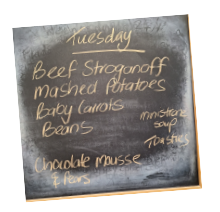 Tuesday
Beef Stroganoff
mashed Potatoes
Baby Carrots
Beans
ministrone
soup
Toasties
Chocolate mousse
& Pears